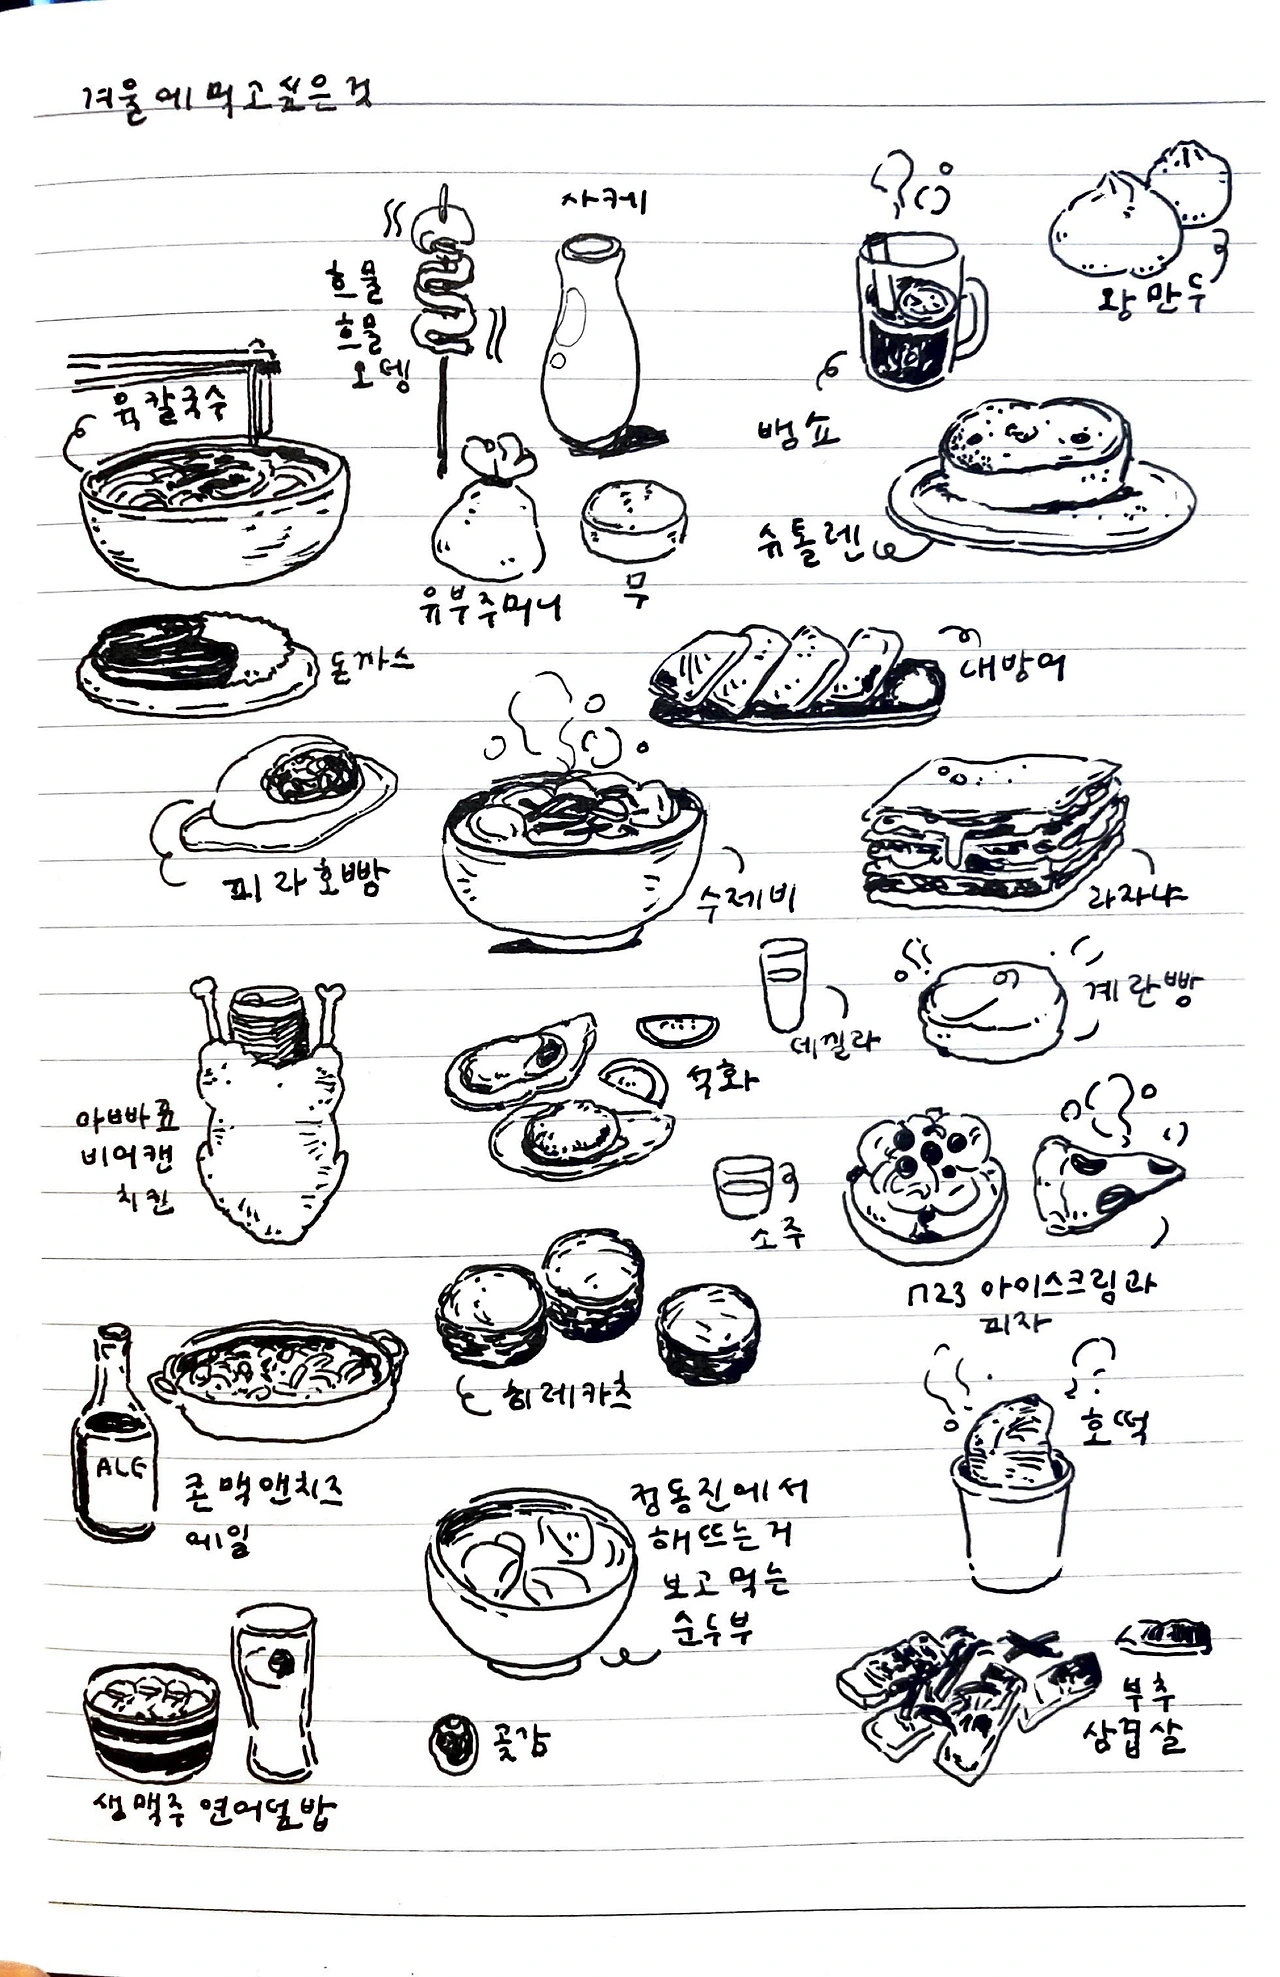 겨울에 먹고싶은것
사케
흐물
흐물
오뎅
왕만두
육칼국수
뱅쇼
슈톨렌
유부주머니
무
돈까스
대방어
피라호빵
수제비
라자냐
데낄라
계란빵
석화
아빠표
비어캔
치킨
소주
아이스크림과
피자
히레카츠
호떡
ALE
콘맥앤치즈
에일
정동진에서
해뜨는거
보고먹는
순두부
부추
삼겹살
곶감
생맥주 연어덮밥